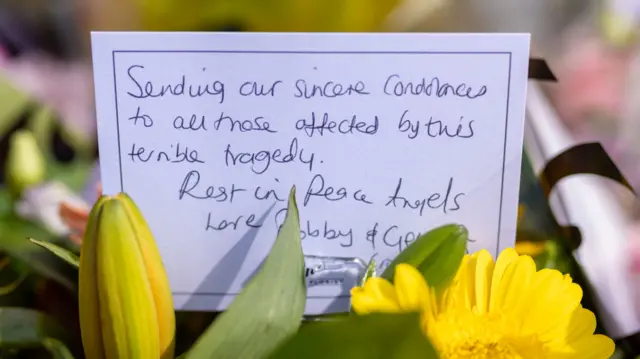 Sending our sincere Condolances
to all those affected by this
terrible tragedy.
Rest in Peace Angels
Love Bobby &